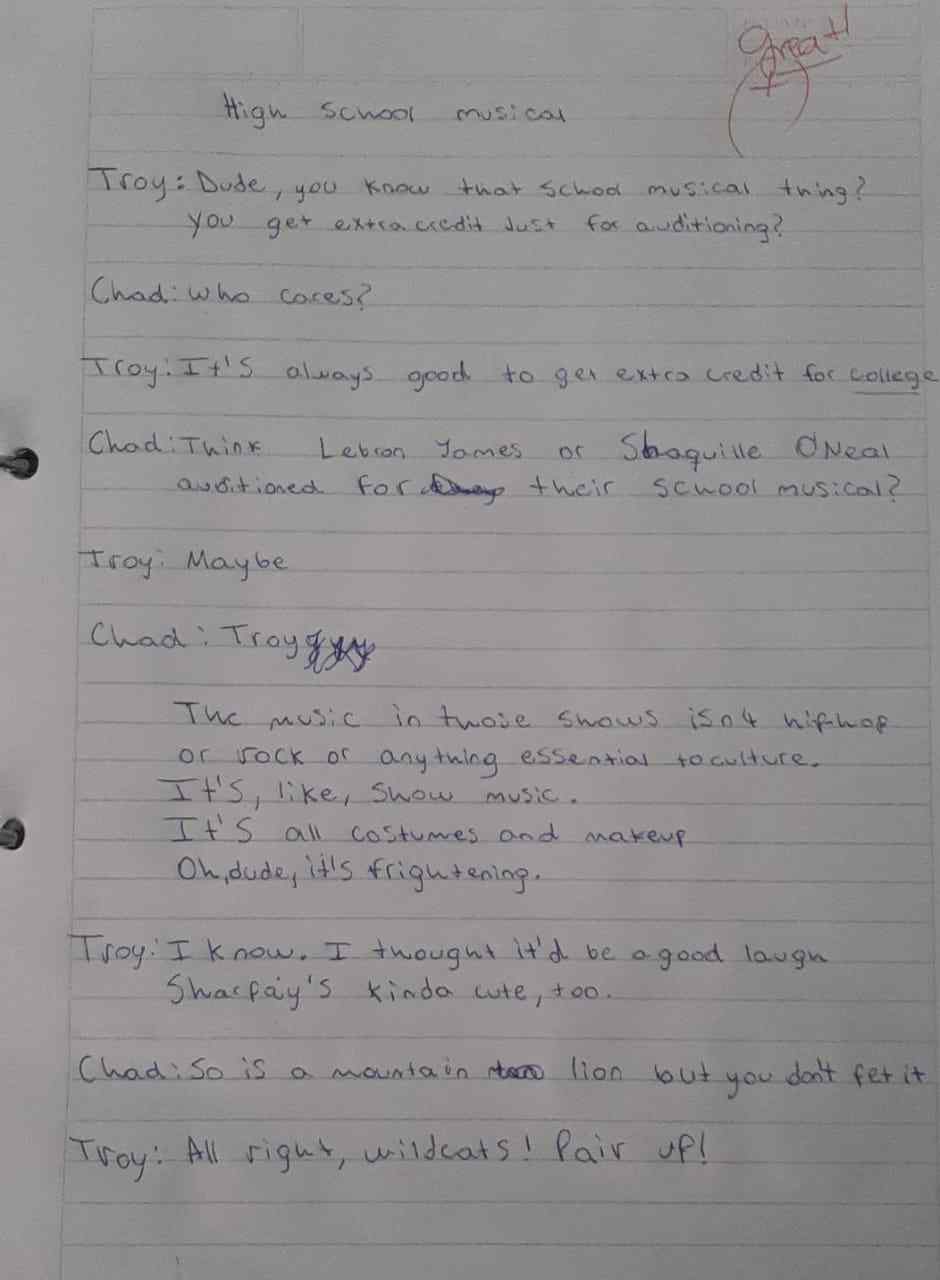 Great!
High school musical
Troy: Dude, you know that school musical thing?
You get extra credit Just for auditioning?
Chad: Who cares?
Troy: It's always good to get extra credit for college
Chad: Think Lebron James or Shaquille O'Neal
auditioned for their school musical?
Troy: Maybe
Chad: Troy
The music in those shows isn't hiphop
or rock or anything essential to culture.
It's, like, show music.
It's all costumes and makeup
Oh, dude, it's frightening.
Troy: I know. I thought it'd be a good laugh
Sharpay's kinda cute, too.
Chad: So is a mountain lion but you don't pet it
Troy: All right, wildcats! Pair up!